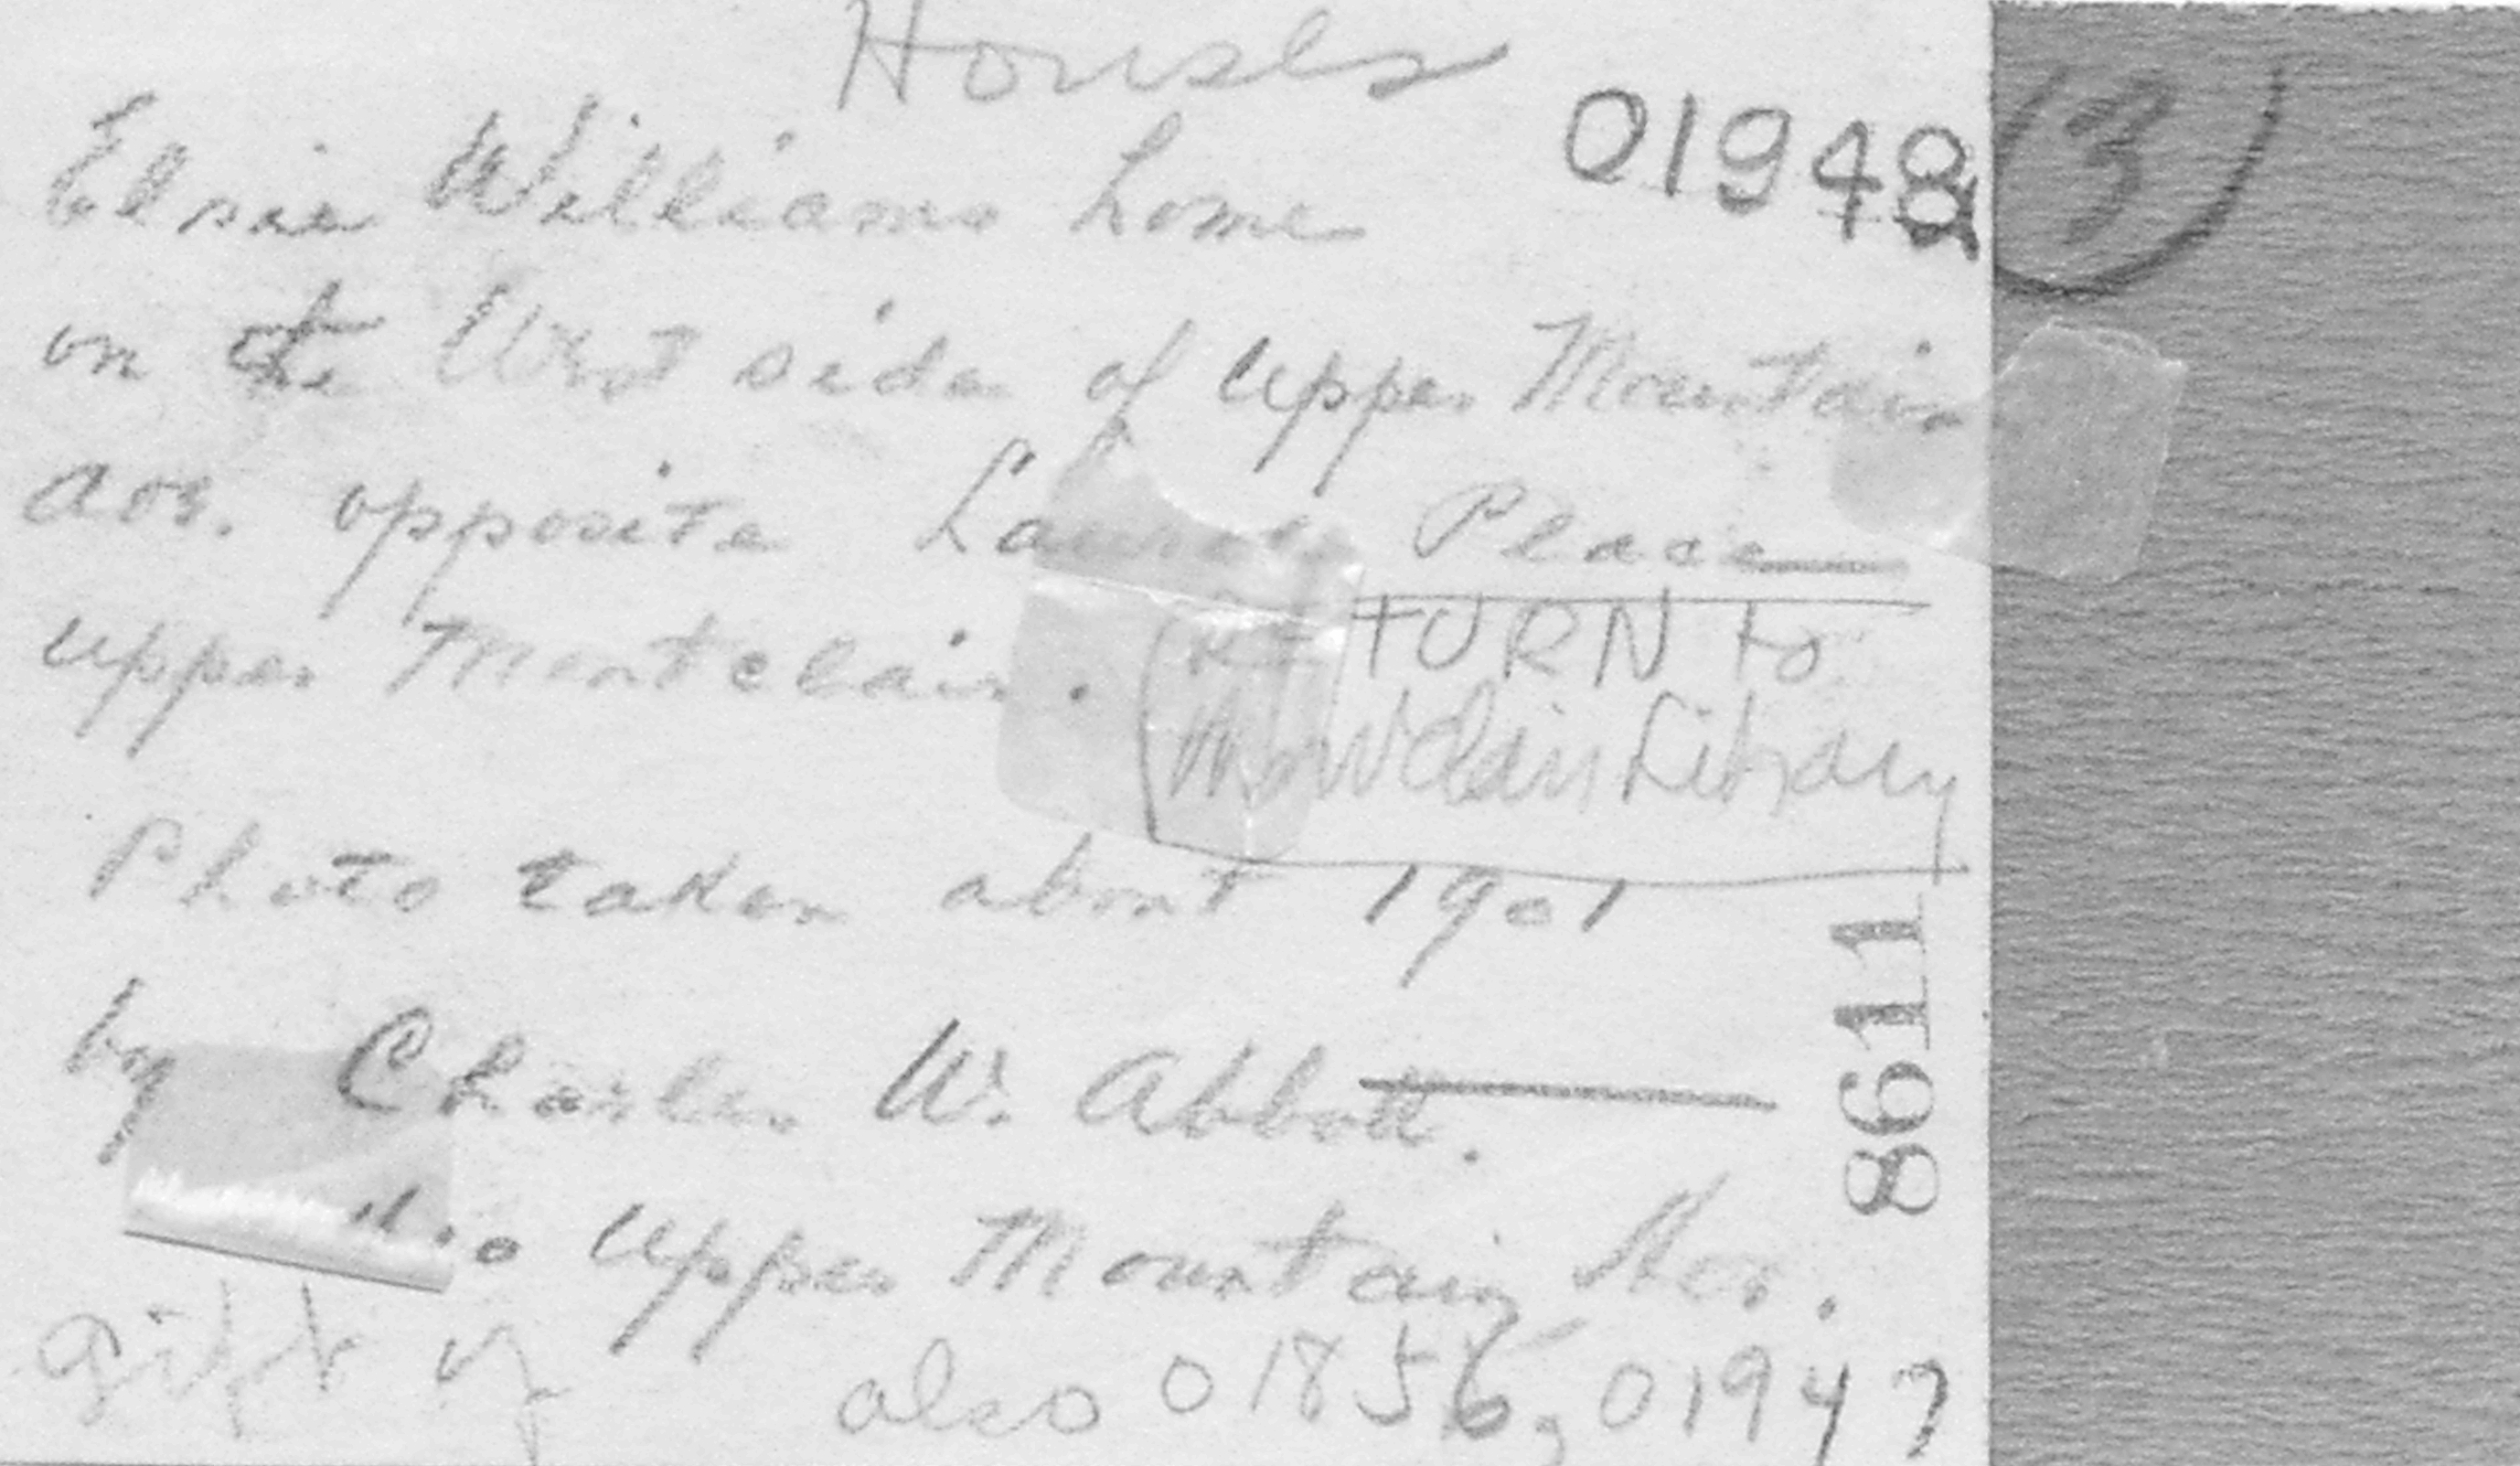 Houses
01948
(3)
Elsie Williams home
on the West side of Upper Mountain
Ave. opposite Laurel Place
RETURN to
Upper Montclair.
Montclair Library
Photo taken about 1901
by Charles W. Abbott.
8611
Upper Mountain Ave.
gift of
also 01856, 01947